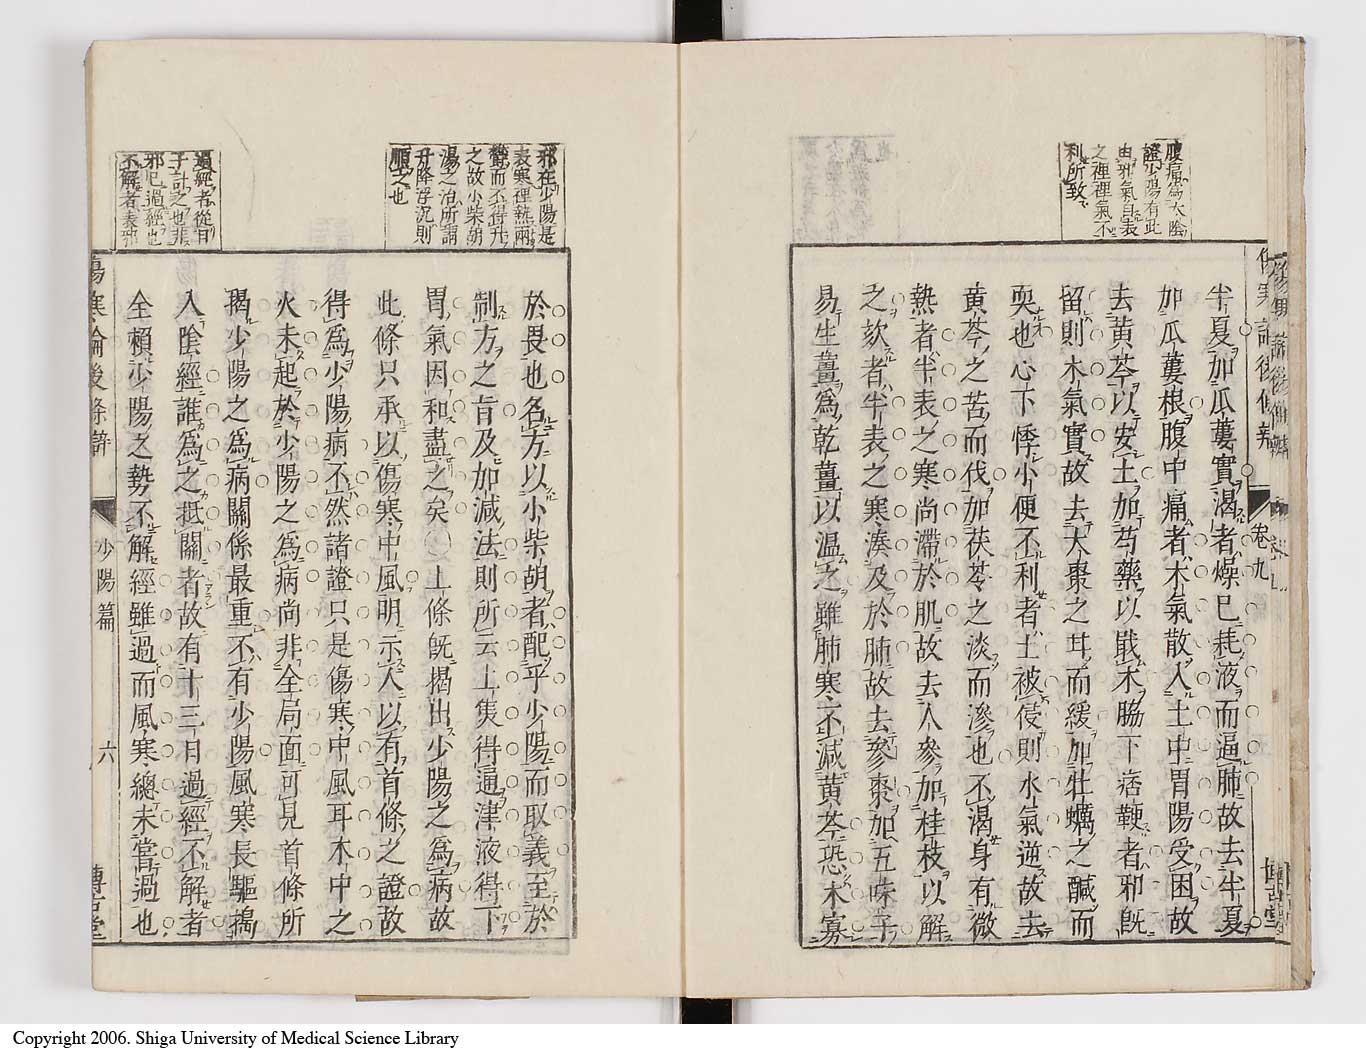 腹痛為太陰
證少陽有此
由邪氣自表
之裡裡氣不
利所致
卷九
半夏加瓜蔞實渴者燥已耗液而逼肺故去半夏
加瓜蔞根腹中痛者木氣散入土中胃陽受困故
去黃芩以安土加芍藥以戢木脇下痞鞕者邪既
留則木氣實故去大棗之甘而緩加牡蠣之鹹而
耎也心下悸小便不利者土被侵則水氣逆故去
黃芩之苦而伐加茯苓之淡而滲也不渴身有微
熱者半表之寒尚滯於肌故去人參加桂枝以解
之欬者半表之寒湊及於肺故去參棗加五味子
易生薑為乾薑以溫之雖肺寒不減黃芩恐木寡
邪在少陽是
表寒裡熱兩
鬱而不得升
之故小柴胡
湯之治所謂
升降浮沉則
順之也
過經者從日
子計之也非
邪已過經也
不解者表邪
於畏也名方以小柴胡者配乎少陽而取義至於
制方之旨及加減法則所云上焦得通津液得下
胃氣因和盡之矣○上條既揭出少陽之為病故
此條只承以傷寒中風明示人以有首條之證故
得為少陽病不然諸證只是傷寒中風耳木中之
火未起於少陽之為病尚非全局面可見首條所
揭少陽之為病關係最重不有少陽風寒長驅搗
入陰經誰為之抵關者故有十三日過經不解者
全賴少陽之勢不解經雖過而風寒總未嘗過也
傷寒論後條辨
少陽篇
六
博古堂
Copyright 2006. Shiga University of Medical Science Library